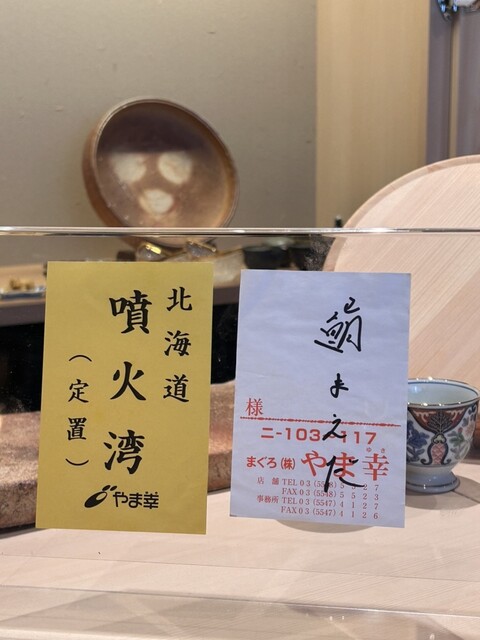 北海道
噴火湾
(定置)
やま幸
鮨まえだ
様
ニ-103 117
まぐろ(株)やま幸
店舗 TEL 03
FAX 03 (5548) 5523
事務所 TEL 03 (5547) 4127
FAX 03 (5547) 4126